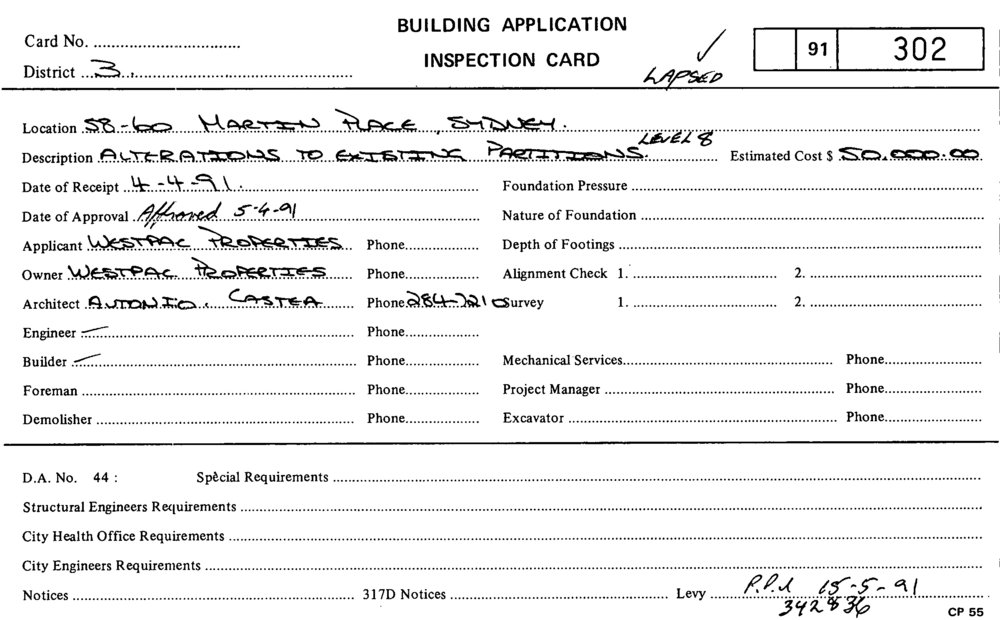 BUILDING APPLICATION
INSPECTION CARD
Card No. ....................
District ... 3 ....................
LAPSED
91 302
Location 58-60 MARTIN PLACE, SYDNEY.
LEVEL 8
Description ALTERATIONS TO EXISTING PARTITIONS. Estimated Cost $ 50,000.00
Date of Receipt 4-4-91. Foundation Pressure ....................
Date of Approval Approved 5-4-91 Nature of Foundation ....................
Applicant WESTPAC PROPERTIES Phone.................... Depth of Footings ....................
Owner WESTPAC PROPERTIES Phone.................... Alignment Check 1. .................... 2. ....................
Architect ANTONIO. CASTEA Phone 284-7210 Survey 1. .................... 2. ....................
Engineer — Phone....................
Builder — Phone.................... Mechanical Services.................... Phone....................
Foreman .................... Phone.................... Project Manager .................... Phone....................
Demolisher .................... Phone.................... Excavator .................... Phone....................
D.A. No. 44 : Special Requirements ....................
Structural Engineers Requirements ....................
City Health Office Requirements ....................
City Engineers Requirements ....................
Notices .................... 317D Notices .................... Levy .......... 15-5-91
342836
CP 55